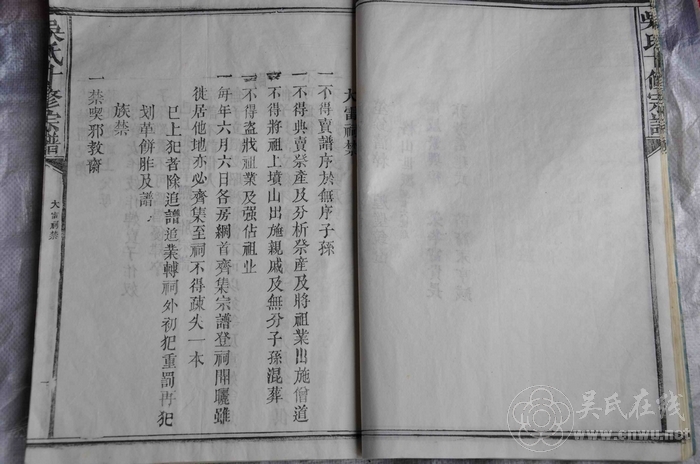 吳氏十修宗譜
大宙祠禁
一不得賣譜序於無序子孫
一不得典賣祭產及分析祭產及將祖業出施僧道
一不得將祖上墳山出施親戚及無分子孫混葬
一不得盜戕祖業及强佔祖业
一每年六月六日各房綱首齊集宗譜登祠開曬雖
徙居他地亦必齊集至祠不得疎失一本
已上犯者除追譜追業轉祠外初犯重罰再犯
划革餅胙及譜
族禁
一禁喫邪教齋
吳氏十修宗譜
大宙祠禁
一
吴氏在线
www.cnwu.net